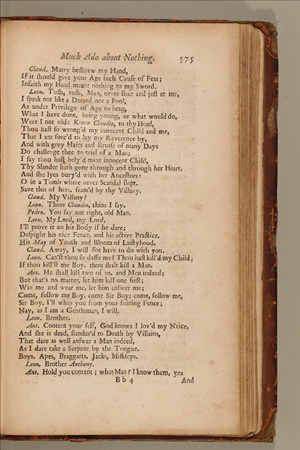 Much Ado about Nothing. 375
Claud. Marry beshrew my Hand,
If it should give your Age such Cause of Fear;
Infaith my Hand meant nothing to my Sword.
Leon. Tush, tush, Man, never fleer and jest at me,
I speak not like a Dotard nor a Fool,
As under Privilege of Age to brag,
What I have done, being young, or what would do,
Were I not old: Know Claudio, to thy Head,
Thou hast so wrong'd my innocent Child and me,
That I am forc'd to lay my Reverence by,
And with grey Hairs and bruise of many Days
Do challenge thee to trial of a Man;
I say thou hast bely'd mine innocent Child,
Thy Slander hath gone through and through her Heart.
And she lyes bury'd with her Ancestors:
O in a Tomb where never Scandal slept,
Save this of hers, fram'd by thy Villany.
Claud. My Villany?
Leon. Thine Claudio, thine I say.
Pedro. You say not right, old Man.
Leon. My Lord, my Lord,
I'll prove it on his Body if he dare;
Despight his nice Fence, and his active Practice,
His May of Youth and Bloom of Lustyhood.
Claud. Away, I will not have to do with you.
Leon. Can'st thou so daffe me? Thou hast kill'd my Child;
If thou kill'st me Boy, thou shalt kill a Man.
Ant. He shall kill two of us, and Men indeed;
But that's no matter, let him kill one first;
Win me and wear me, let him answer me;
Come, follow me Boy, come Sir Boy, come, follow me,
Sir Boy, I'll whip you from your foining Fence;
Nay, as I am a Gentleman, I will.
Leon. Brother.
Ant. Content your self, God knows I lov'd my Neice,
And she is dead, slander'd to Death by Villains,
That dare as well answer a Man indeed,
As I dare take a Serpent by the Tongue.
Boys, Apes, Braggarts, Jacks, Milksops.
Leon. Brother Anthony.
Ant. Hold you content; what Man? I know them, yea
B b 4 And